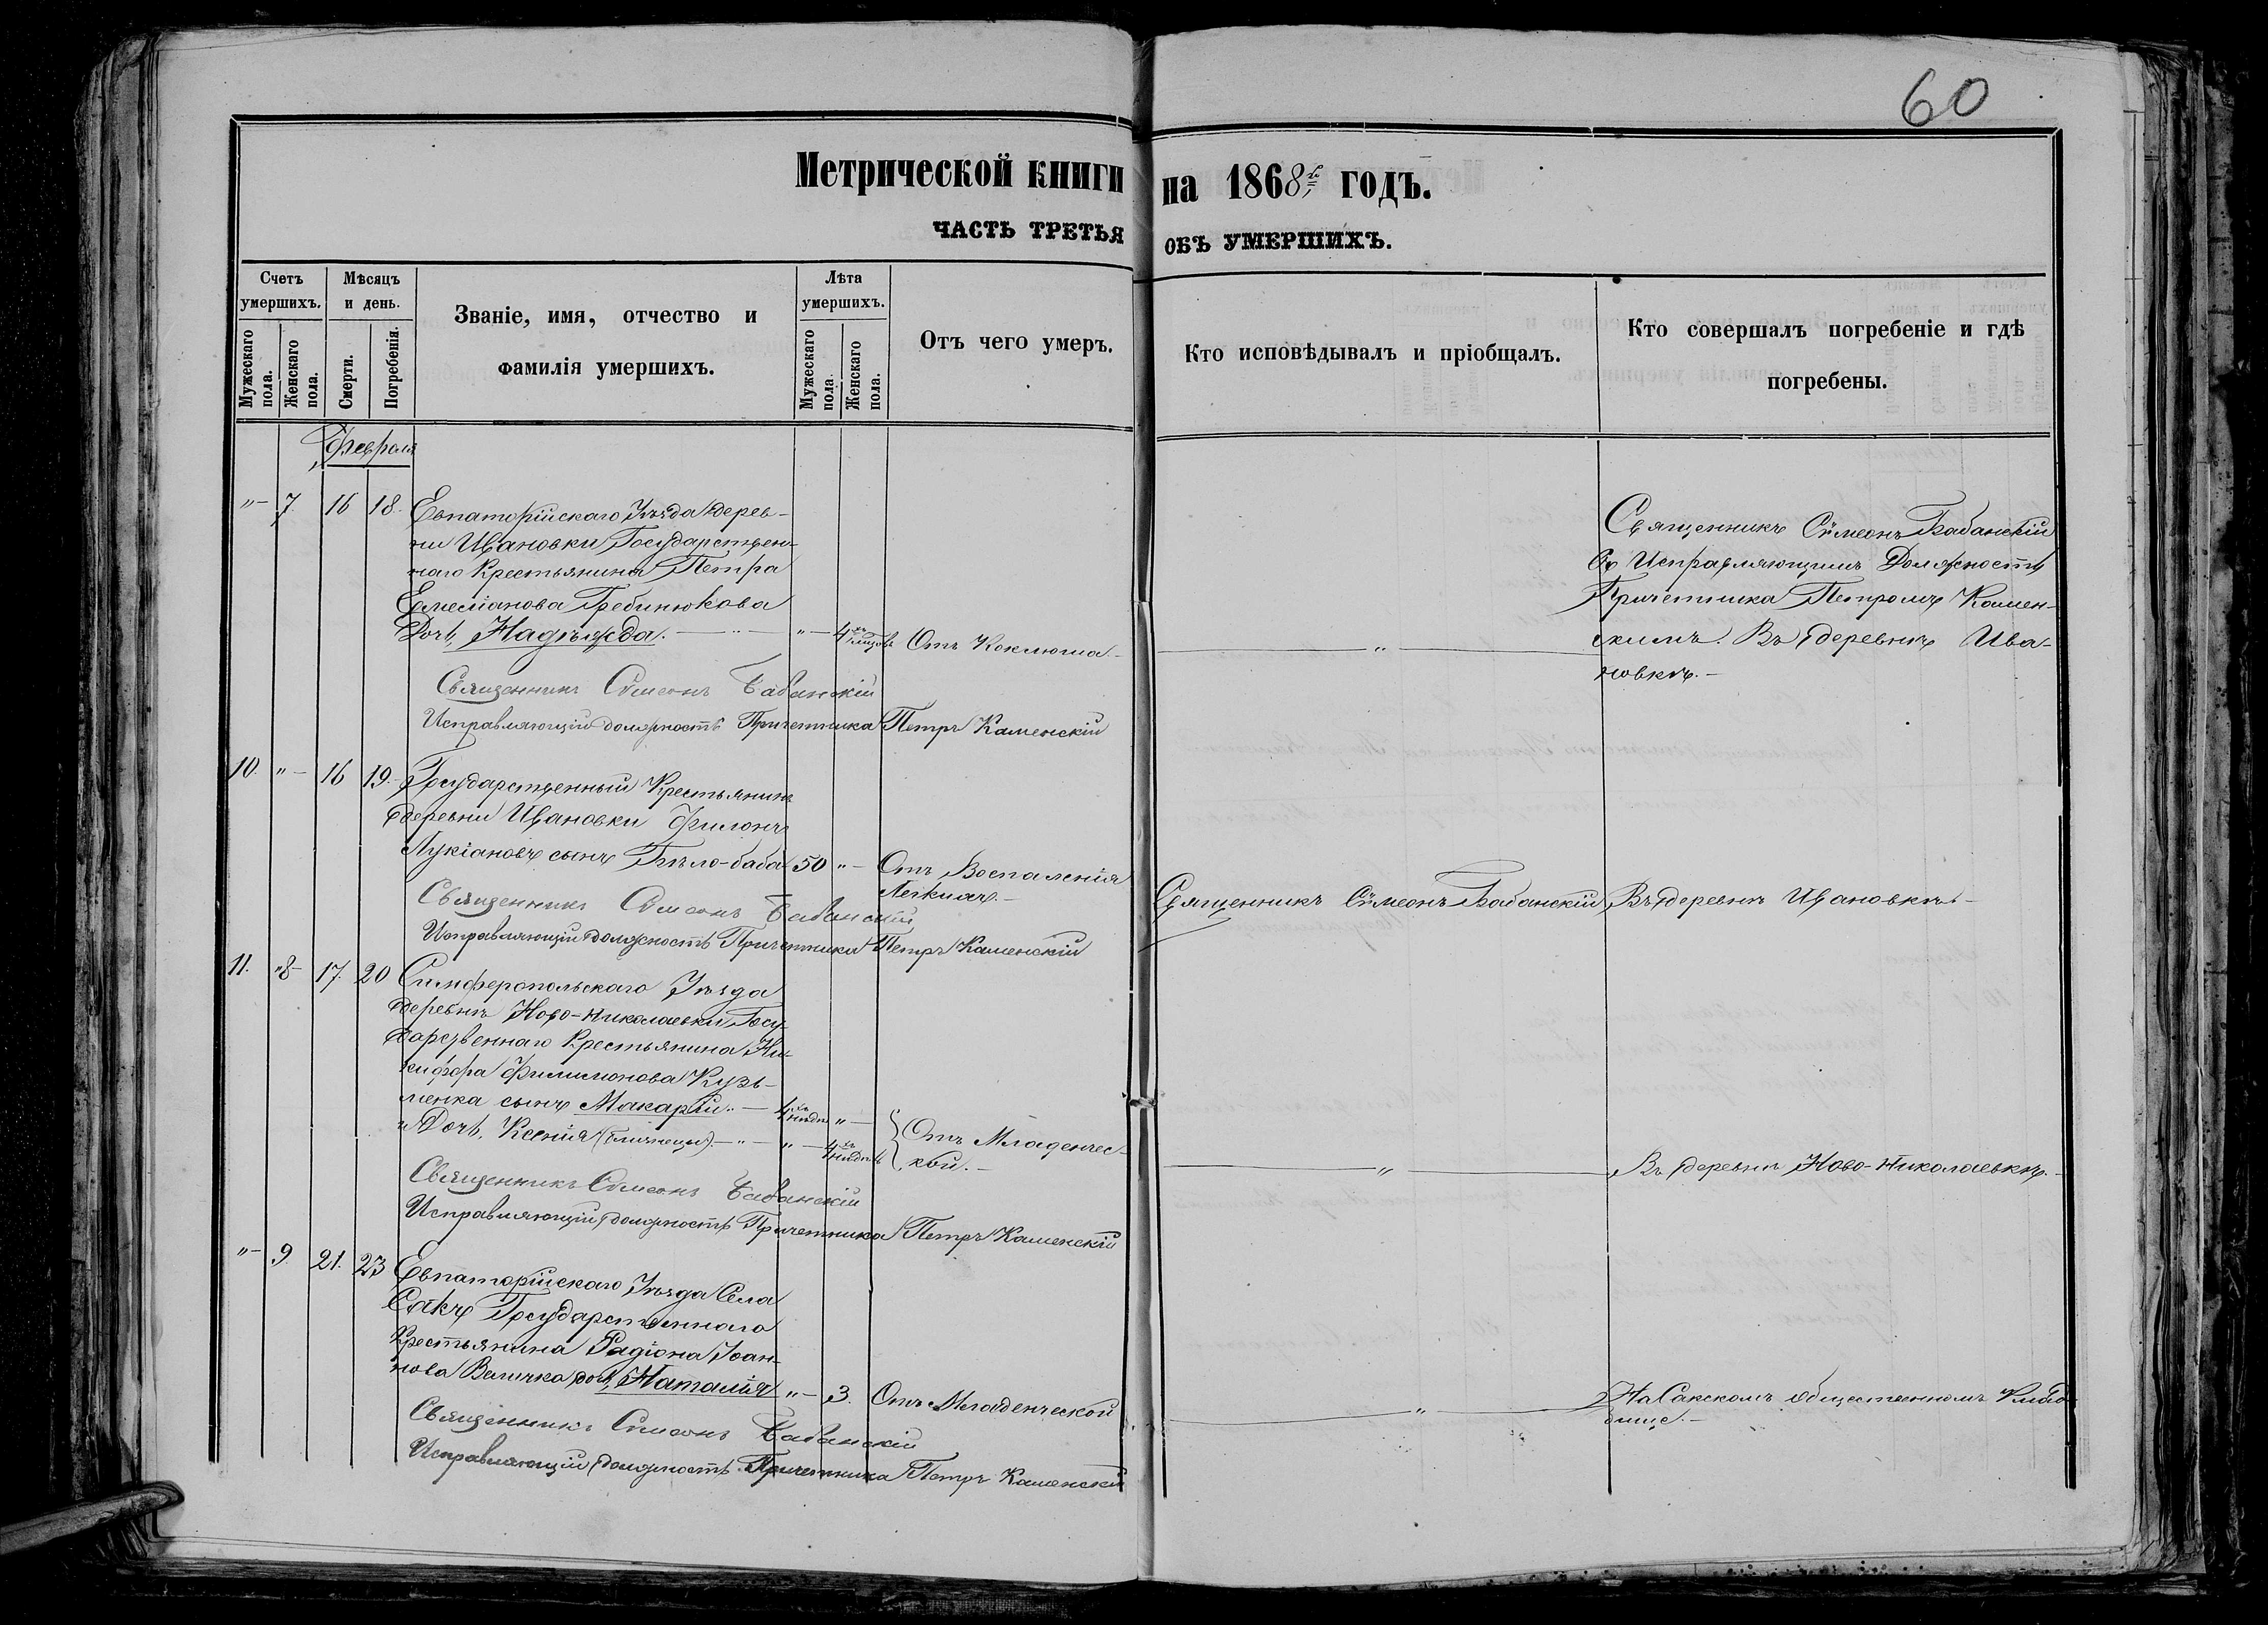 60
Метрической книги на 1868й годъ.
ЧАСТЬ ТРЕТЬЯ ОБЪ УМЕРШИХЪ.
Счетъ умершихъ.
Мужескаго пола.
Женскаго пола.
Мѣсяцъ и день.
Смерти.
Погребенія.
Званіе, имя, отчество и
фамилія умершихъ.
Лѣта умершихъ.
Мужескаго пола.
Женскаго пола.
Отъ чего умеръ.
Кто исповѣдывалъ и пріобщалъ.
Кто совершалъ погребеніе и гдѣ
погребены.
Февраля
"- 7. 16 18. Евпаторійскаго Уѣзда дерев-
ни Ивановки Государствен-
наго Крестьянина Петра
Емеліанова Гребинюкова
Дочь, Надѣжда. - " - "- 4хъ мѣцовъ Отъ Коклюша.-
"
Священникъ Сѵмеонъ Бабанскій
Съ Исправляющимъ Должность
Причетника Петромъ Камен-
скимъ. Въ деревнѣ Ива-
новкѣ.-
Священникъ Сѵмеонъ Бабанскій
Исправляющій должность Причетника Петръ Каменскій
10. "- 16 19.- Государственный Крестьянинъ
деревни Ивановки Филонъ
Лукіановъ сынъ Бѣло-баба 50 "- Отъ Воспаленія
Легкихъ.-
Священникъ Сѵмеонъ Бабанскій Въ деревнѣ Ивановкѣ.-
Священникъ Сѵмеонъ Бабанскій
Исправляющій должность Причетника Петръ Каменскій
11. "8- 17. 20 Симферопольскаго Уѣзда
деревнѣ Ново-Николаевки Госу-
дарственнаго Крестьянина Ни-
кифора Филимонова Кузь-
менка сынъ Макарій.- 4хъ недѣль "-
и Дочь, Ксенія (близнецы).- " - "- 4хъ недѣль Отъ Младенчес-
кой.-
" Въ деревнѣ Ново-Николаевкѣ.-
Священникъ Сѵмеонъ Бабанскій
Исправляющій должность Причетника Петръ Каменскій
"- 9. 21. 23 Евпаторійскаго Уѣзда Села
Сакъ Государственнаго
Крестьянина Радіона Іоан-
нова Величка дочь, Наталія "- 3. Отъ Младенческой
" На Сакскомъ общественномъ Клад-
бище.-
Священникъ Сѵмеонъ Бабанскій
Исправляющій должность Причетника Петръ Каменскій